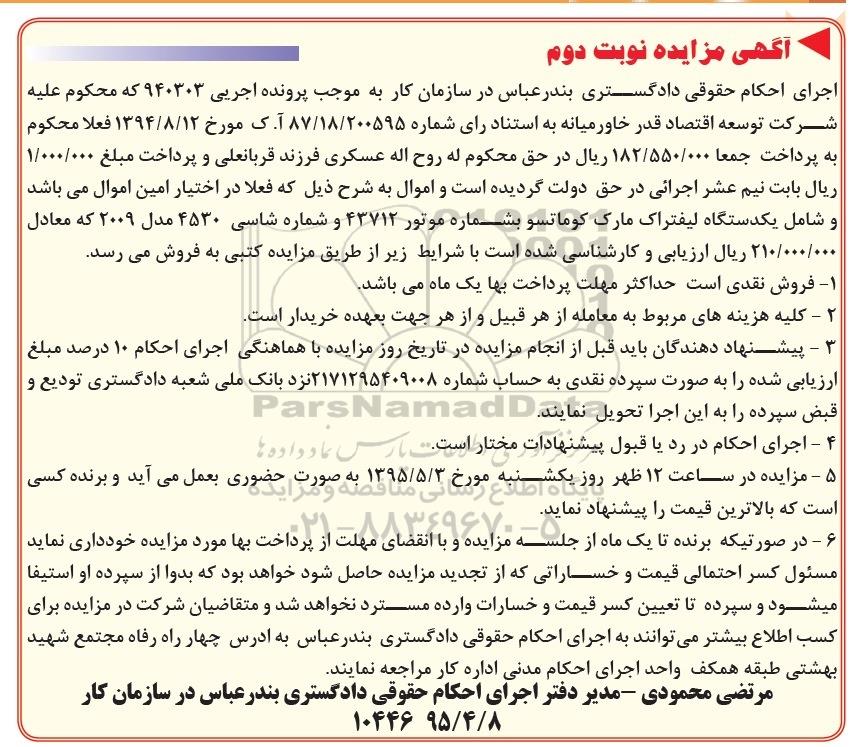 آگهی مزایده نوبت دوم
اجرای احکام حقوقی دادگستری بندرعباس در سازمان کار به موجب پرونده اجریی ۹۴۰۳۰۳ که محکوم علیه
شرکت توسعه اقتصاد قدر خاورمیانه به استناد رای شماره ۸۷/۱۸/۲۰۰۵۹۵ آ. ک مورخ ۱۳۹۴/۸/۱۲ فعلا محکوم
به پرداخت جمعا ۱۸۲/۵۵۰/۰۰۰ ریال در حق محکوم له روح اله عسکری فرزند قربانعلی و پرداخت مبلغ ۱/۰۰۰/۰۰۰
ریال بابت نیم عشر اجرائی در حق دولت گردیده است و اموال به شرح ذیل که فعلا در اختیار امین اموال می باشد
و شامل یکدستگاه لیفتراک مارک کوماتسو بشماره موتور ۴۳۷۱۲ و شماره شاسی ۴۵۳۰ مدل ۲۰۰۹ که معادل
۲۱۰/۰۰۰/۰۰۰ ریال ارزیابی و کارشناسی شده است با شرایط زیر از طریق مزایده کتبی به فروش می رسد.
۱- فروش نقدی است حداکثر مهلت پرداخت بها یک ماه می باشد.
۲ - کلیه هزینه های مربوط به معامله از هر قبیل و از هر جهت بعهده خریدار است.
۳ - پیشنهاد دهندگان باید قبل از انجام مزایده در تاریخ روز مزایده با هماهنگی اجرای احکام ۱۰ درصد مبلغ
ارزیابی شده را به صورت سپرده نقدی به حساب شماره ۲۱۷۱۲۹۵۴۰۹۰۰۸نزد بانک ملی شعبه دادگستری تودیع و
قبض سپرده را به این اجرا تحویل نمایند.
ParsNamadData
۴ - اجرای احکام در رد یا قبول پیشنهادات مختار است.
مرکز فرآوری اطلاعات پارس نماد داده ها
۵ - مزایده در ساعت ۱۲ ظهر روز یکشنبه مورخ ۱۳۹۵/۵/۳ به صورت حضوری بعمل می آید و برنده کسی
پایگاه اطلاع رسانی مناقصه و مزایده
است که بالاترین قیمت را پیشنهاد نماید.
۰۲۱-۸۸۳۴۹۶۷۰-۵
۶ - در صورتیکه برنده تا یک ماه از جلسه مزایده و با انقضای مهلت از پرداخت بها مورد مزایده خودداری نماید
مسئول کسر احتمالی قیمت و خساراتی که از تجدید مزایده حاصل شود خواهد بود که بدوا از سپرده او استیفا
میشود و سپرده تا تعیین کسر قیمت و خسارات وارده مسترد نخواهد شد و متقاضیان شرکت در مزایده برای
کسب اطلاع بیشتر می‌توانند به اجرای احکام حقوقی دادگستری بندرعباس به ادرس چهار راه رفاه مجتمع شهید
بهشتی طبقه همکف واحد اجرای احکام مدنی اداره کار مراجعه نمایند.
مرتضی محمودی –مدیر دفتر اجرای احکام حقوقی دادگستری بندرعباس در سازمان کار
۹۵/۴/۸ ۱۰۴۴۶